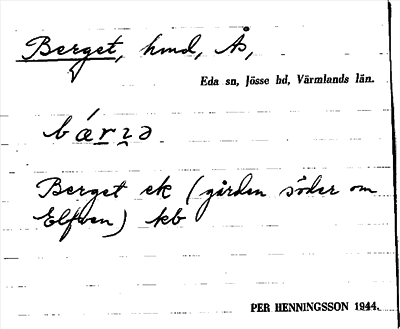 Berget, hmd, Ås,
Eda sn, Jösse hd, Värmlands län.
Berget ek (gården söder om
Elfven) kb
PER HENNINGSSON 1944.